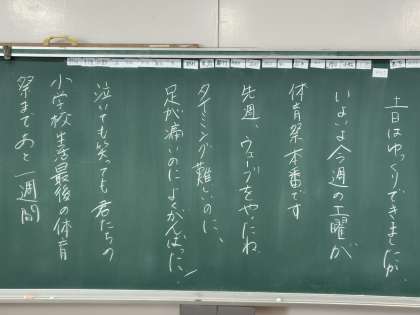 土日はゆっくりできましたか。
いよいよ今週の土曜が
体育祭本番です
先週、ウェーブをやったね
タイミング難しいのに、
足が痛いのによくがんばった!
泣いても笑っても君たちの
小学校生活最後の体育
祭まであと一週間